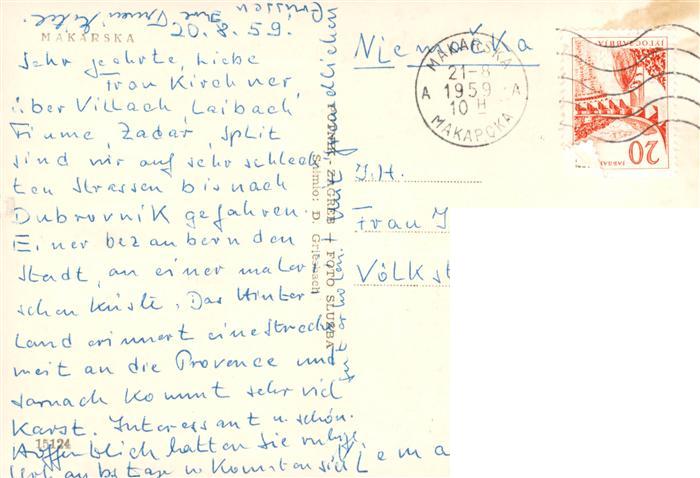 20.8.59.
MAKARSKA
Sehr geehrte, liebe
Frau Kirchner,
über Villach, Laibach,
Fiume, Zadar, Split
sind wir auf sehr schlech-
ten Strassen bis nach
Dubrovnik gefahren.
Einer bezaubernden
Stadt, an einer maleri-
schen Küste. Das Hinter-
land erinnert eine Strecke
weit an die Provence und
darnach kommt sehr viel
Karst. Interessant u. schön.
Hoffentlich hatten Sie ruhige
15124
gut erholen! Mit freundlichen
Grüssen
ZAGREB - FOTO SLUŽBA
Snimio: D. Griesbach
Niemačka
MAKARSKA
21-8
1959
10 H
A A
МАКАРСКА
JUGOSLAVIJA
20
I.H.
Frau I
Völkst